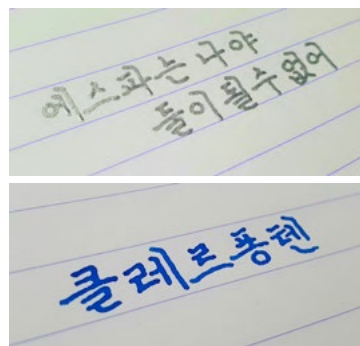 에스파는 나야
둘이 될 수 없어
클레르퐁텐